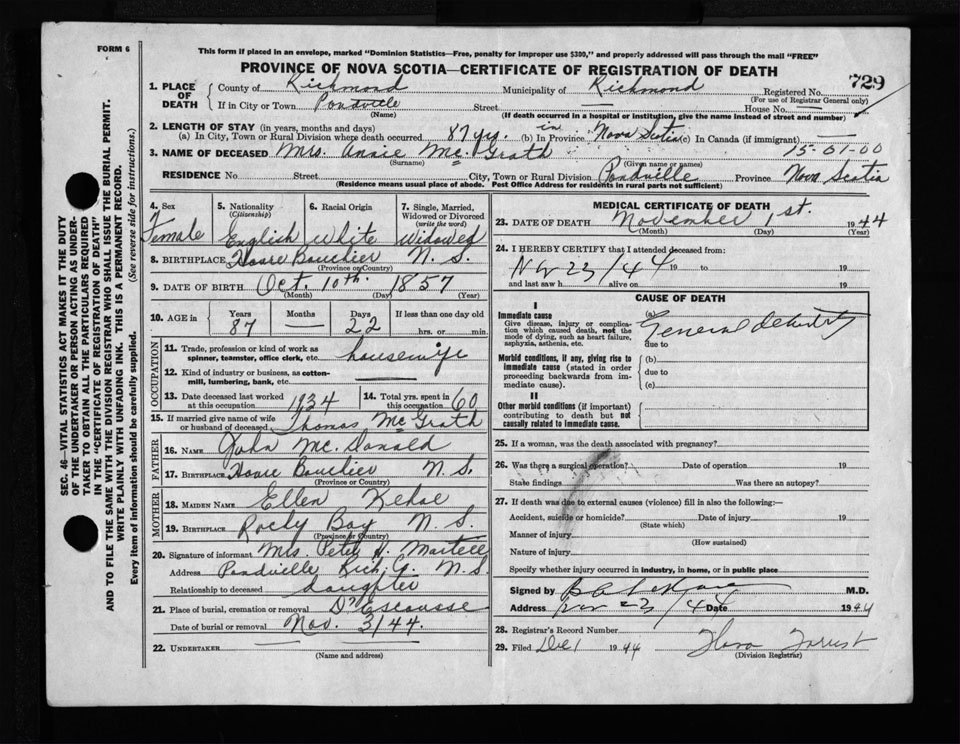 FORM 6
This form if placed in an envelope, marked "Dominion Statistics—Free, penalty for improper use $300," and properly addressed will pass through the mail "FREE"
PROVINCE OF NOVA SCOTIA—CERTIFICATE OF REGISTRATION OF DEATH
729
1. PLACE OF DEATH County of Richmond Municipality of Richmond Registered No.
(For use of Registrar General only)
If in City or Town Pondville Street — House No. —
(Name) (If death occurred in a hospital or institution, give the name instead of street and number)
2. LENGTH OF STAY (in years, months and days)
(a) In City, Town or Rural Division where death occurred 87 yrs. (b) in Province in Nova Scotia (c) In Canada (if immigrant) —
15-01-00
3. NAME OF DECEASED Mrs. Annie Mc Grath
(Surname) (Given name or names)
RESIDENCE No Street City, Town or Rural Division Pondville Province Nova Scotia
(Residence means usual place of abode. Post Office Address for residents in rural parts not sufficient)
SEC. 46—VITAL STATISTICS ACT MAKES IT THE DUTY
OF THE UNDERTAKER OR PERSON ACTING AS UNDER-
TAKER TO OBTAIN ALL THE PARTICULARS REQUIRED
IN THE "CERTIFICATE OF REGISTRATION OF DEATH"
AND TO FILE THE SAME WITH THE DIVISION REGISTRAR WHO SHALL ISSUE THE BURIAL PERMIT.
WRITE PLAINLY WITH UNFADING INK. THIS IS A PERMANENT RECORD.
Every item of information should be carefully supplied. (See reverse side for instructions.)
4. Sex Female
5. Nationality (Citizenship) English
6. Racial Origin White
7. Single, Married, Widowed or Divorced (write the word) Widowed
8. BIRTHPLACE Bouchier N. S.
(Province or Country)
9. DATE OF BIRTH Oct. 10th. 1857
(Month) (Day) (Year)
10. AGE in Years 87 Months — Days 22 If less than one day old
hrs. or min.
OCCUPATION
11. Trade, profession or kind of work as spinner, teamster, office clerk, etc. housewife
12. Kind of industry or business, as cotton-mill, lumbering, bank, etc. —
13. Date deceased last worked at this occupation 1934
14. Total yrs. spent in this occupation 60
15. If married give name of wife or husband of deceased Thomas Mc Grath
FATHER
16. NAME John Mc. Donald
17. BIRTHPLACE Bouchier N. S.
(Province or Country)
MOTHER
18. MAIDEN NAME Ellen Kehoe
19. BIRTHPLACE Rocky Bay N. S.
(Province or Country)
20. Signature of informant Mrs. Peter Martell
Address Pondville Rich. Co. N. S.
Relationship to deceased daughter
21. Place of burial, cremation or removal D'Escousse
Date of burial or removal Nov. 3/44.
22. UNDERTAKER
(Name and address)
MEDICAL CERTIFICATE OF DEATH
23. DATE OF DEATH November 1st. 1944
(Month) (Day) (Year)
24. I HEREBY CERTIFY that I attended deceased from:
Nov 23/44 19 to 19
and last saw h alive on 19
CAUSE OF DEATH
I
Immediate cause
Give disease, injury or complication which caused death, not the mode of dying, such as heart failure, asphyxia, asthenia, etc.
(a) General debility
due to
Morbid conditions, if any, giving rise to immediate cause (stated in order proceeding backwards from immediate cause).
(b)
due to
(c)
II
Other morbid conditions (if important) contributing to death but not causally related to immediate cause.
25. If a woman, was the death associated with pregnancy?
26. Was there a surgical operation? Date of operation 19
State findings Was there an autopsy?
27. If death was due to external causes (violence) fill in also the following:—
Accident, suicide or homicide? Date of injury 19
(State which)
Manner of injury
(How sustained)
Nature of injury
Specify whether injury occurred in industry, in home, or in public place
Signed by M.D.
Address Nov 23/44 Date 1944
28. Registrar's Record Number
29. Filed Dec 1 1944 Flora
(Division Registrar)